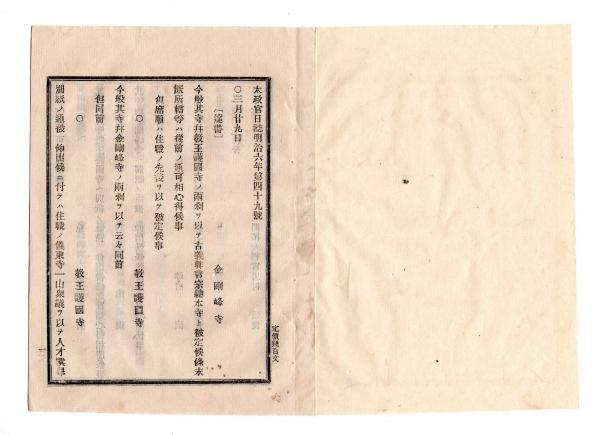 太政官日誌明治六年第四十九號
○三月廿九日
〔達書〕
金剛峰寺
今般其寺幷敎王護國寺ノ兩刹ヲ以テ古義眞言宗總本寺ト被定候條末
派所轄等ハ從前ノ通可相心得候事
但席順ハ住職ノ先後ヲ以テ被定候事
○
敎王護國寺
今般其寺幷金剛峰寺ノ兩刹ヲ以テ云々同前
但同前
○
敎王護國寺
別紙ノ通被 仰出候ニ付テハ住職ノ儀東寺一山衆議ヲ以テ人才
定價
百文
一